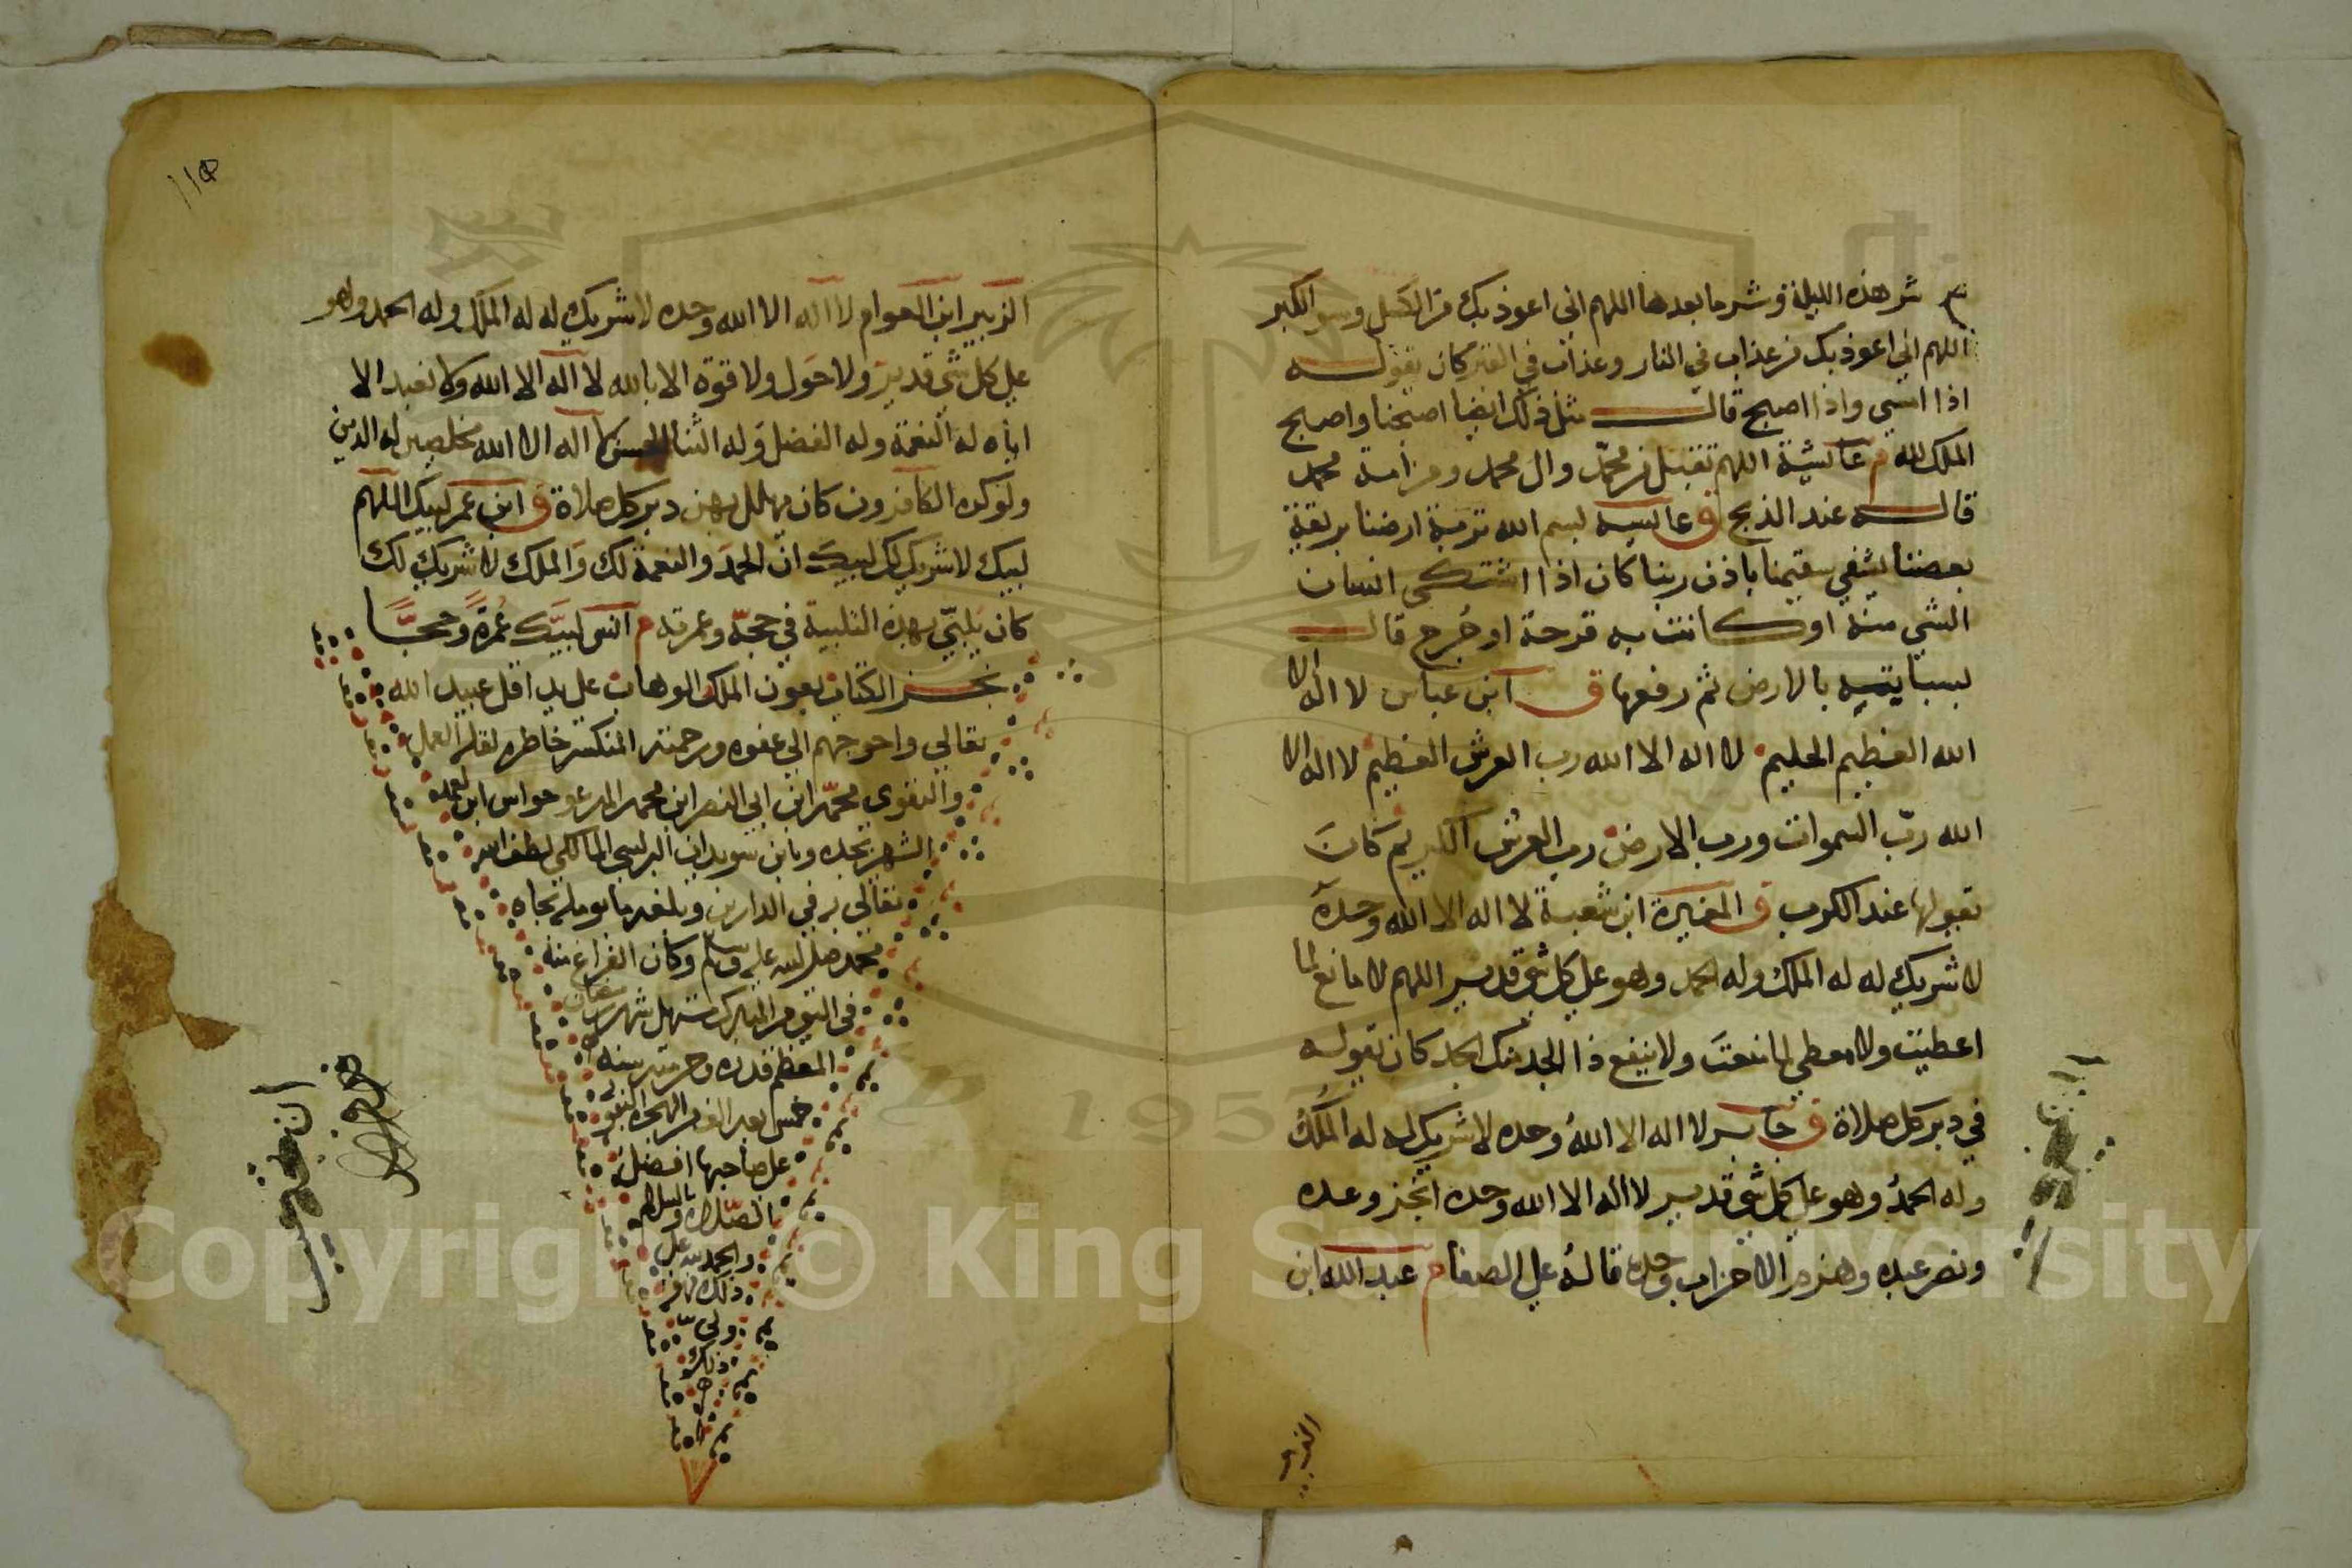 شر هذه الليلة وشر ما بعدها اللهم اني اعوذ بك من الكسل وسو الكبر
اللهم اني اعوذ بك من عذاب في النار وعذاب في القبر كان يقوله
اذا امسي واذا اصبح قال مثل ذلك ايضا اصبحنا واصبح
الملك لله م عايشة اللهم تقبل من محمد وال محمد ومن امة محمد
قاله عند الذبح ق عايشة بسم الله تربة ارضنا بريقة
بعضنا يشفي سقيمنا باذن ربنا كان اذا اشتكى انسان
الشي منه او كانت به قرحة او جرح قال
بسبابته بالارض ثم رفعها ق ابن عباس لا اله الا
الله العظيم الحليم لا اله الا الله رب العرش العظيم لا اله الا
الله رب السموات ورب الارض رب العرش الكريم كان
يقولها عند الكرب ق المغيرة ابن شعبة لا اله الا الله وحده
لا شريك له له الملك وله الحمد وهو علي كل شي قدير اللهم لا مانع لما
اعطيت ولا معطي لما منعت ولا ينفع ذا الجد منك الجد كان يقوله
في دبر كل صلاة ق جابر لا اله الا الله وحده لا شريك له له الملك
وله الحمد وهو علي كل شي قدير لا اله الا الله وحده انجز وعده
ونصر عبده وهزم الاحزاب وحده قاله علي الصفا م عبد الله ابن
الزبير
١١٥
الزبير ابن العوام لا اله الا الله وحده لا شريك له له الملك وله الحمد وهو
علي كل شي قدير ولا حول ولا قوة الا بالله لا اله الا الله ولا نعبد الا
اياه له النعمة وله الفضل وله الثنا الحسن لا اله الا الله مخلصين له الدين
ولو كره الكافرون كان يهلل بهن دبر كل صلاة ق ابن عمر لبيك اللهم
لبيك لا شريك لك لبيك ان الحمد والنعمة لك والملك لا شريك لك
كان يلبي بهذه التلبية في حجة وعمرته م انس لبيك عمرة وحجا
نجز الكتاب بعون الملك الوهاب علي يد اقل عبيد الله
تعالي واحوجهم الي عفوه ورحمته المنكسر خاطره لقلة العمل
والتقوي محمد ابن ابي النصر ابن محمد المدعو حواس ابن
الشهير بجده وبابن سويدان البرلسي المالكي لطف الله
تعالي به في الدارين وبلغه ما يومله بجاه
محمد صلي الله عليه وسلم وكان الفراغ منه
في اليوم المبارك مستهل شهر شعبان
المعظم قدره وحرمته سنة
خمس بعد الف من الهجرة النبوية
علي صاحبها افضل
الصلاة والسلام
والحمد لله علي
ذلك
ذلك